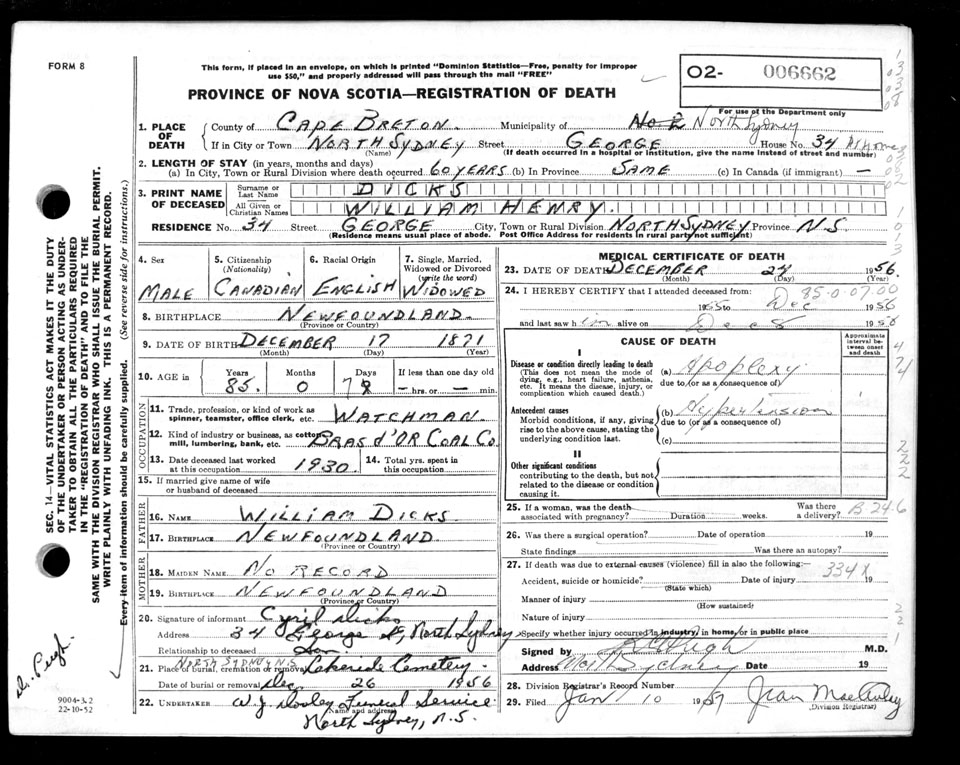 FORM 8
This form, if placed in an envelope, on which is printed "Dominion Statistics—Free, penalty for improper
use $50," and properly addressed will pass through the mail "FREE"
02- 006662
PROVINCE OF NOVA SCOTIA—REGISTRATION OF DEATH
For use of the Department only
1. PLACE OF DEATH
County of CAPE BRETON. Municipality of No 2 North Sydney
If in City or Town NORTH SYDNEY Street GEORGE House No. 34 At Home
(Name) (If death occurred in a hospital or institution, give the name instead of street and number)
2. LENGTH OF STAY (in years, months and days)
(a) In City, Town or Rural Division where death occurred 60 YEARS (b) In Province SAME (c) In Canada (if immigrant) —
3. PRINT NAME OF DECEASED
Surname or Last Name DICKS
All Given or Christian Names WILLIAM HENRY.
RESIDENCE No. 34 Street GEORGE City, Town or Rural Division NORTH SYDNEY Province N.S.
(Residence means usual place of abode. Post Office Address for residents in rural parts not sufficient)
4. Sex MALE
5. Citizenship (Nationality) CANADIAN
6. Racial Origin ENGLISH
7. Single, Married, Widowed or Divorced (write the word) WIDOWED
8. BIRTHPLACE NEWFOUNDLAND.
(Province or Country)
9. DATE OF BIRTH DECEMBER 17 1871
(Month) (Day) (Year)
10. AGE in Years Months Days If less than one day old
85. 0 7 — hrs. or — min.
OCCUPATION
11. Trade, profession, or kind of work as spinner, teamster, office clerk, etc. WATCHMAN
12. Kind of industry or business, as cotton mill, lumbering, bank, etc. BRAS d'OR COAL CO.
13. Date deceased last worked at this occupation 1930.
14. Total yrs. spent in this occupation
15. If married give name of wife or husband of deceased
FATHER
16. NAME WILLIAM DICKS.
17. BIRTHPLACE NEWFOUNDLAND.
(Province or Country)
MOTHER
18. MAIDEN NAME NO RECORD
19. BIRTHPLACE NEWFOUNDLAND
(Province or Country)
20. Signature of informant Cyril Dicks
Address 34 George St, North Sydney
Relationship to deceased Son.
21. Place of burial, cremation or removal NORTH SYDNEY N.S. Lakeside Cemetery.
Date of burial or removal Dec 26 1956
22. UNDERTAKER W. J. Dooley Funeral Service
(Name and address)
North Sydney, N.S.
MEDICAL CERTIFICATE OF DEATH
23. DATE OF DEATH DECEMBER 24 1956.
(Month) (Day) (Year)
24. I HEREBY CERTIFY that I attended deceased from: 85-0-07.00
1955 to Dec 1956
and last saw him alive on Dec 8 1956
CAUSE OF DEATH
Approximate interval between onset and death
I
Disease or condition directly leading to death
(This does not mean the mode of dying, e.g., heart failure, asthenia, etc. It means the disease, injury, or complication which caused death.)
(a) Apoplexy
due to (or as a consequence of)
Antecedent causes
Morbid conditions, if any, giving rise to the above cause, stating the underlying condition last.
(b) Hypertension
due to (or as a consequence of)
(c)
II
Other significant conditions
contributing to the death, but not related to the disease or condition causing it.
25. If a woman, was the death associated with pregnancy? Duration weeks. Was there a delivery? B 246
26. Was there a surgical operation? Date of operation 19
State findings Was there an autopsy?
27. If death was due to external causes (violence) fill in also the following:— 334X
Accident, suicide or homicide? Date of injury 19
(State which)
Manner of injury
(How sustained)
Nature of injury
Specify whether injury occurred in industry, in home, or in public place
Signed by M.D.
Address North Sydney Date 19
28. Division Registrar's Record Number
29. Filed Jan 10 1957
(Division Registrar)
SEC. 14—VITAL STATISTICS ACT MAKES IT THE DUTY
OF THE UNDERTAKER OR PERSON ACTING AS UNDER-
TAKER TO OBTAIN ALL THE PARTICULARS REQUIRED
IN THE "REGISTRATION OF DEATH" AND TO FILE THE
SAME WITH THE DIVISION REGISTRAR WHO SHALL ISSUE THE BURIAL PERMIT.
WRITE PLAINLY WITH UNFADING INK. THIS IS A PERMANENT RECORD.
Every item of information should be carefully supplied. (See reverse side for instructions.)
9004-3.2
22-10-52